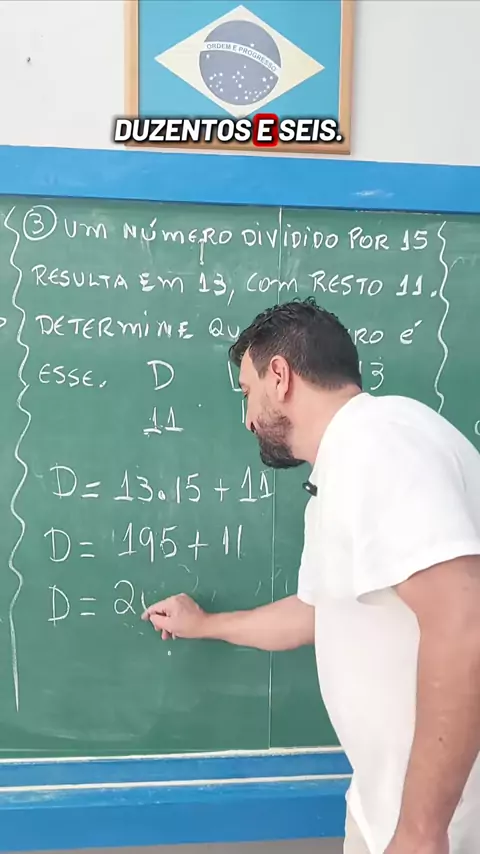 ORDEM E PROGRESSO
DUZENTOS E SEIS.
③ UM NÚMERO DIVIDIDO POR 15
RESULTA EM 13, COM RESTO 11.
DETERMINE É
ESSE. D
11
D = 13.15 + 11
D = 195 + 11
D = 2